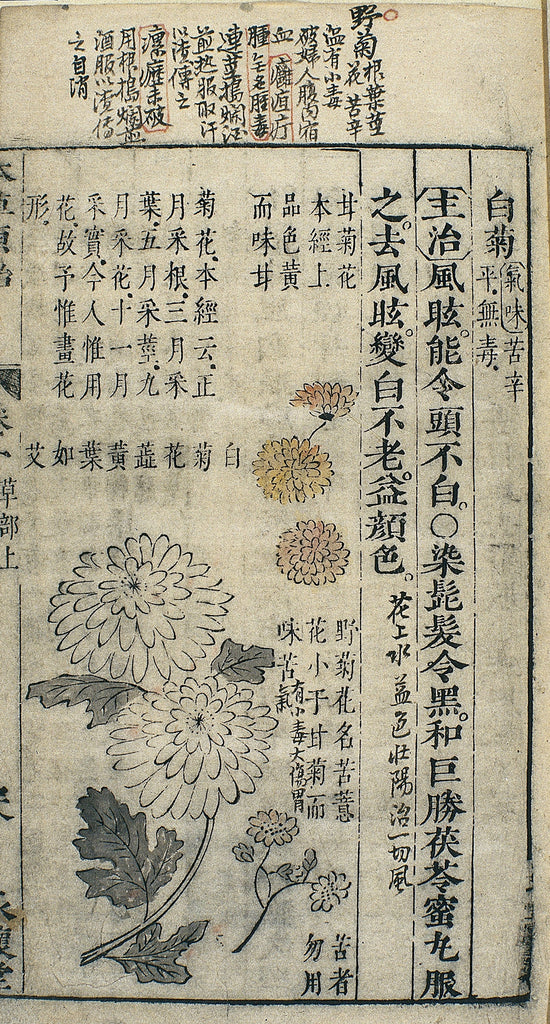 野菊根葉莖
花苦辛
溫有小毒
破婦人腹內宿
血癰疽疔
腫無名腫毒
連莖搗爛酒
煎熱服取汗
以渣傅之
瘰癧未破
用根搗爛煎
酒服以渣傅
之自消
白菊氣味苦辛
平無毒
主治風眩。能令頭不白。○染髭髮令黑。和巨勝茯苓蜜丸服
之。去風眩。變白不老。益顏色。花上水益色壯陽治一切風
甘菊花
本經上
品色黃
而味甘
菊花。本經云。正
月采根。三月采
葉。五月采莖。九
月采花。十一月
采實。今人惟用
花。故予惟畫花
形。
白
菊
花
蘂
黃
葉
如
艾
野菊花名苦薏
花小于甘菊而
味苦有小毒大傷胃
氣
苦者
勿用
草部上